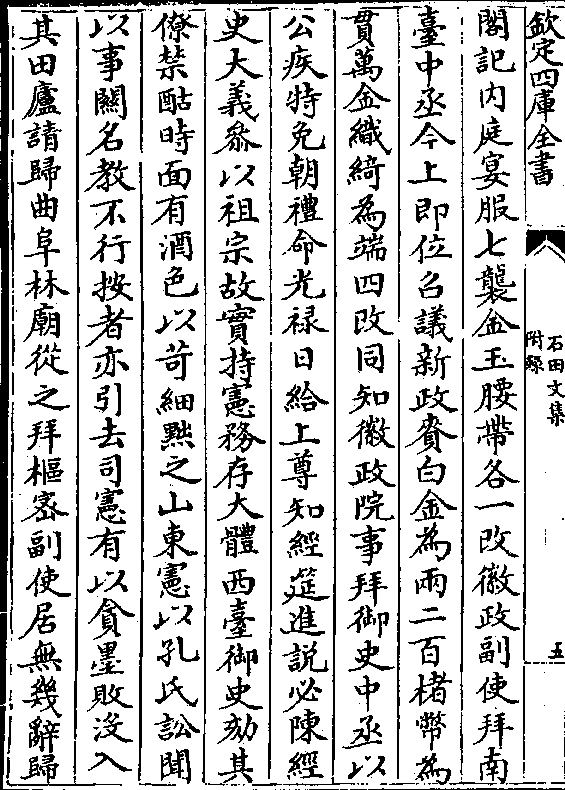 欽定四庫全書
石田文集
附録
五
閣記内庭宴服七襲金玉腰帶各一改徽政副使拜南
臺中丞今上即位召議新政賚白金為兩二百楮幣為
貫萬金織綺為端四改同知徽政院事拜御史中丞以
公疾特免朝禮命光禄日給上尊知經筵進説必陳經
史大義叅以祖宗故實持憲務存大體西臺御史劾其
僚禁酤時面有酒色以苛細黙之山東憲以孔氏訟聞
以事闗名教不行按者亦引去司憲有以貪墨敗没入
其田廬請歸曲阜林廟從之拜樞密副使居無幾辭歸